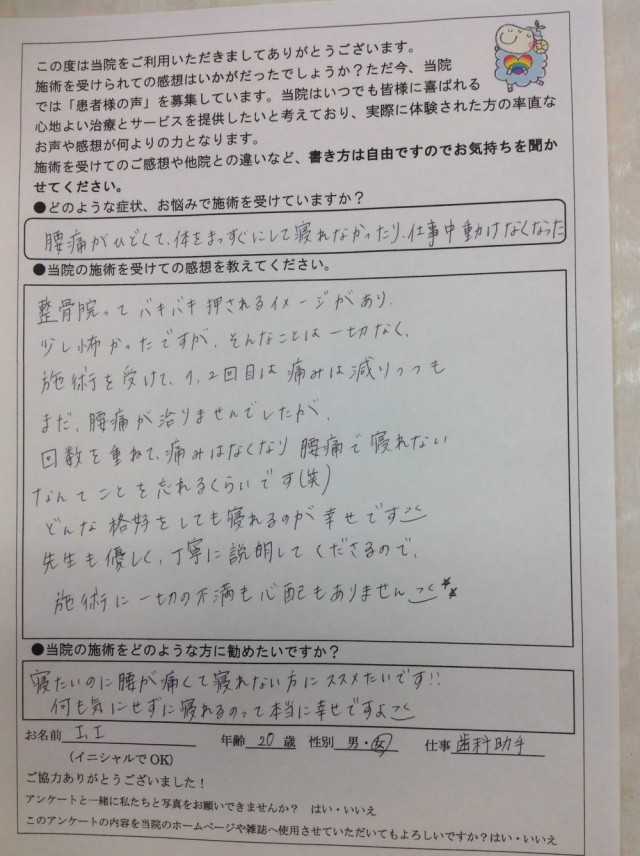 この度は当院をご利用いただきましてありがとうございます。
施術を受けられての感想はいかがだったでしょうか？ただ今、当院
では「患者様の声」を募集しています。当院はいつでも皆様に喜ばれる
心地よい治療とサービスを提供したいと考えており、実際に体験された方の率直な
お声や感想が何よりの力となります。
施術を受けてのご感想や他院との違いなど、書き方は自由ですのでお気持ちを聞か
せてください。
●どのような症状、お悩みで施術を受けていますか？
腰痛がひどくて、体をまっすぐにして寝れなかったり、仕事中動けなくなった
●当院の施術を受けての感想を教えてください。
整骨院って バキバキ押されるイメージがあり、
少し怖かったですが、そんなことは一切なく、
施術を受けて、1、2回目は痛みは減りつつも
まだ、腰痛が治りませんでしたが、
回数を重ねて、痛みはなくなり 腰痛で寝れない
なんてことを忘れるくらいです(笑)
どんな格好をしても寝れるのが幸せです
先生も優しく、丁寧に説明してくださるので、
施術に一切の不満も心配もありません
●当院の施術をどのような方に勧めたいですか？
寝たいのに腰が痛くて寝れない方にススメたいです!!
何も気にせずに寝れるのって本当に幸せですよ
お名前 I.I 年齢 20 歳 性別 男・女 仕事 歯科助手
(イニシャルでOK)
ご協力ありがとうございました！
アンケートと一緒に私たちと写真をお願いできませんか？ はい・いいえ
このアンケートの内容を当院のホームページや雑誌へ使用させていただいてもよろしいですか？はい・いいえ